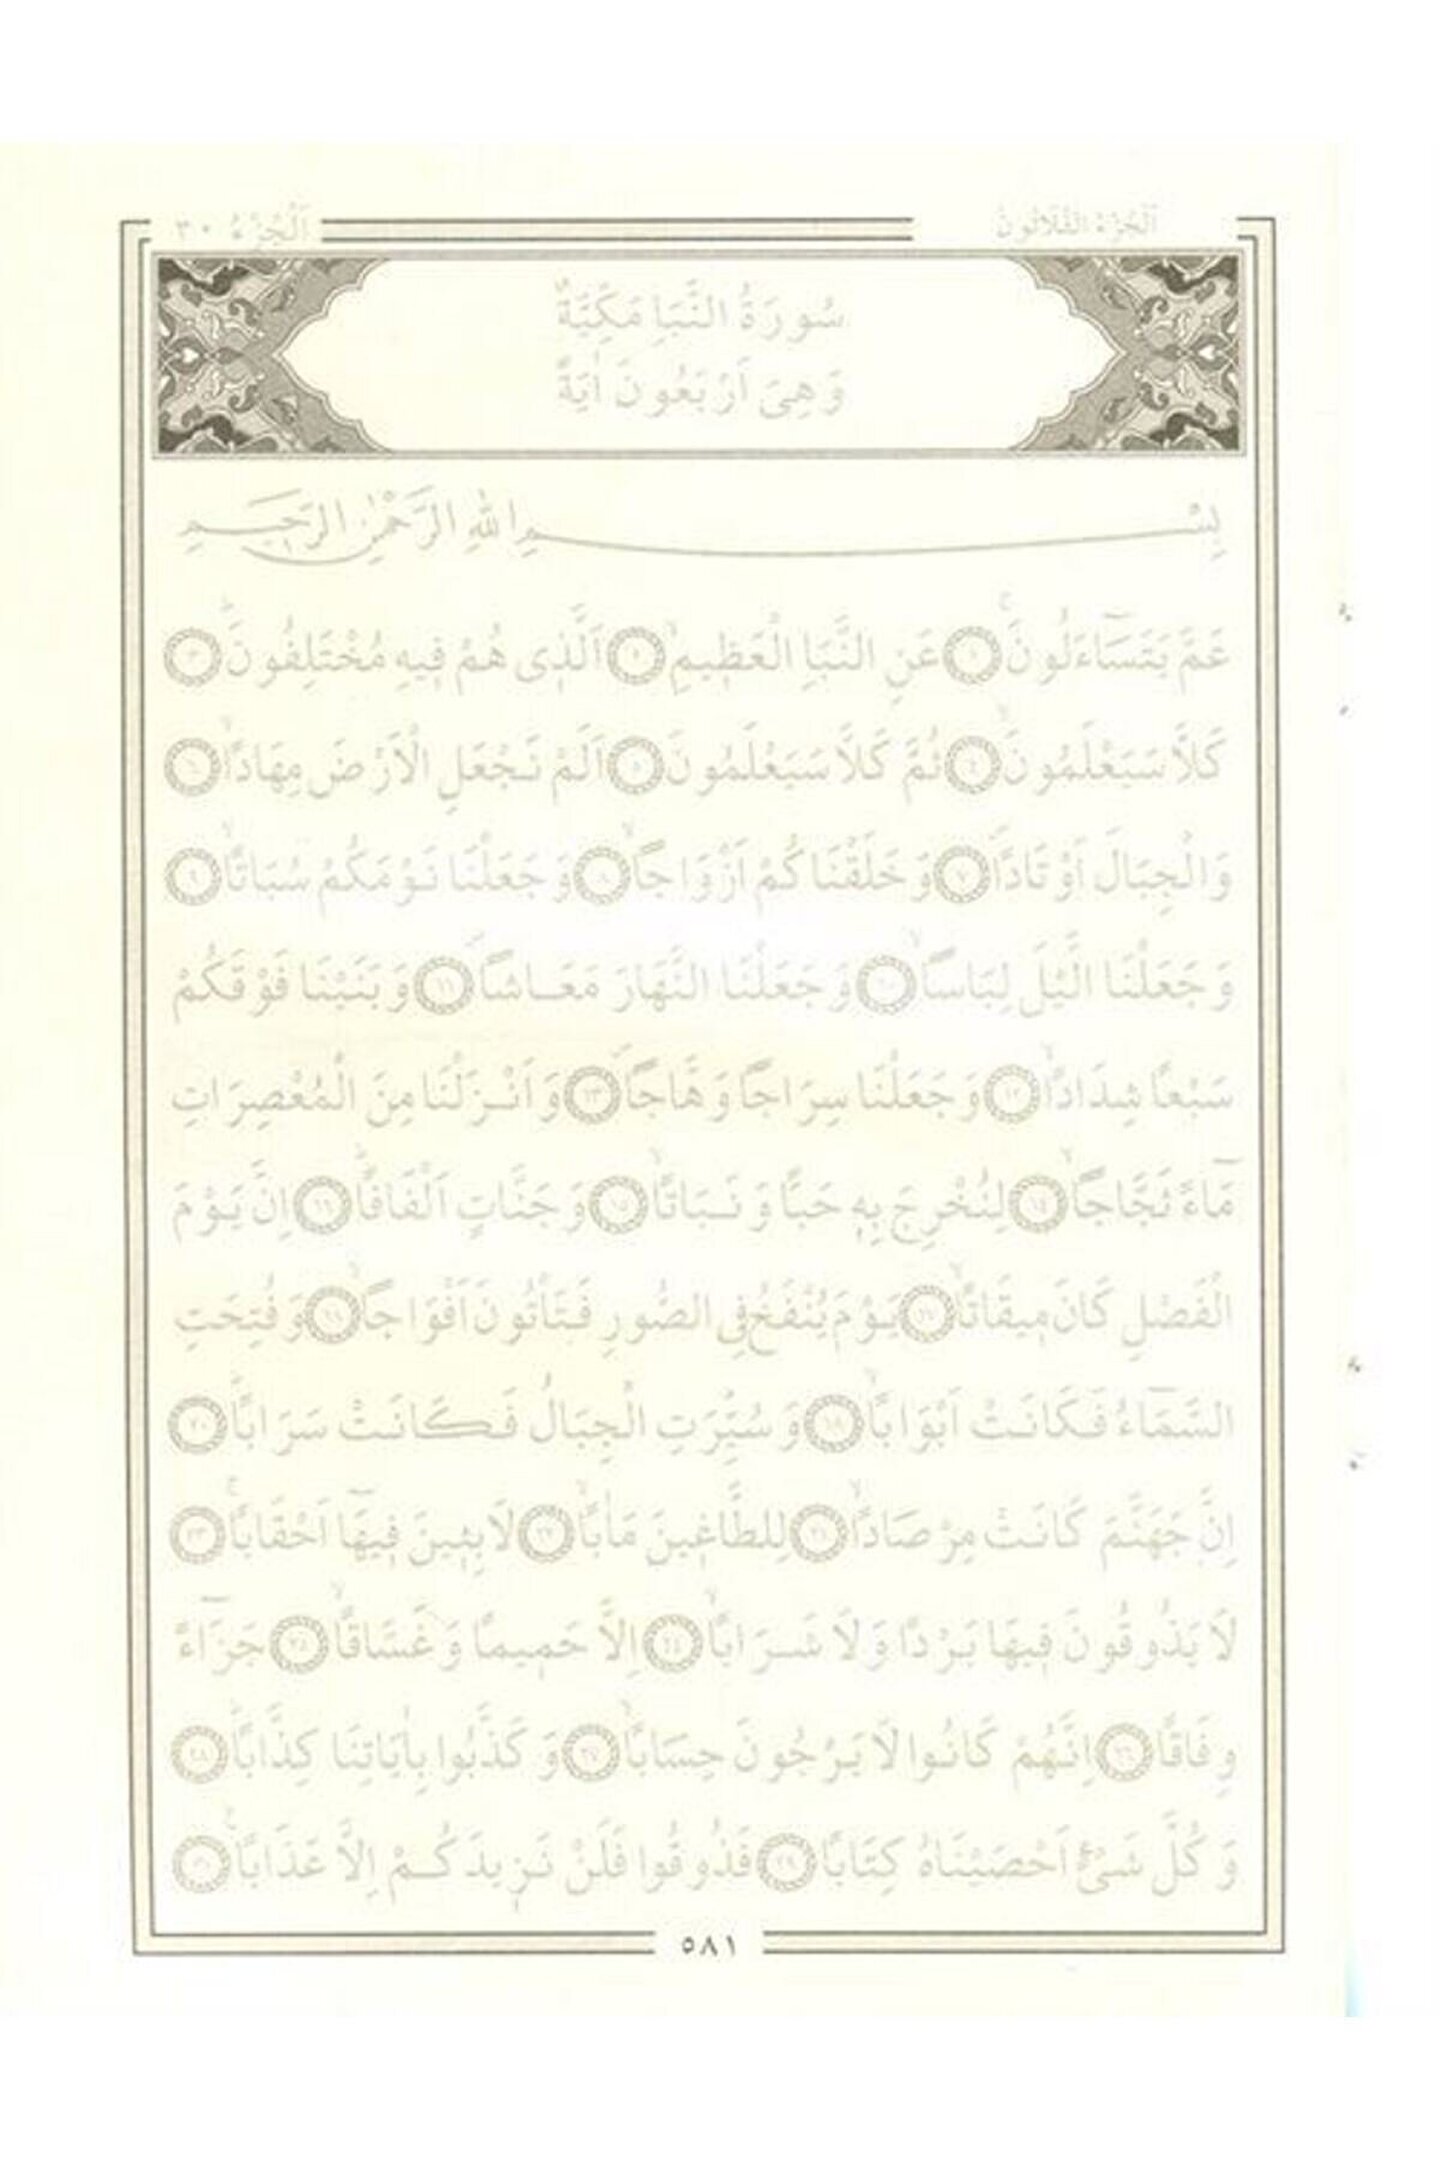 اَلْجُزْءُ الثَّلَاثُونَ
اَلْجُزْءُ ٣٠
سُورَةُ النَّبَأِ مَكِّيَّةٌ
وَهِىَ اَرْبَعُونَ اٰيَةً
بِسْمِ اللهِ الرَّحْمٰنِ الرَّحِيمِ
عَمَّ يَتَسَآءَلُونَۚ ﴿١﴾ عَنِ النَّبَاِ الْعَظِيمِۙ ﴿٢﴾ اَلَّذِى هُمْ فِيهِ مُخْتَلِفُونَۜ ﴿٣﴾
كَلَّا سَيَعْلَمُونَۙ ﴿٤﴾ ثُمَّ كَلَّا سَيَعْلَمُونَ ﴿٥﴾ اَلَمْ نَجْعَلِ الْاَرْضَ مِهَادًاۙ ﴿٦﴾
وَالْجِبَالَ اَوْتَادًا ﴿٧﴾ وَخَلَقْنَاكُمْ اَزْوَاجًاۙ ﴿٨﴾ وَجَعَلْنَا نَوْمَكُمْ سُبَاتًاۙ ﴿٩﴾
وَجَعَلْنَا الَّيْلَ لِبَاسًاۙ ﴿١٠﴾ وَجَعَلْنَا النَّهَارَ مَعَاشًا ﴿١١﴾ وَبَنَيْنَا فَوْقَكُمْ
سَبْعًا شِدَادًاۙ ﴿١٢﴾ وَجَعَلْنَا سِرَاجًا وَهَّاجًا ﴿١٣﴾ وَاَنْزَلْنَا مِنَ الْمُعْصِرَاتِ
مَآءً ثَجَّاجًاۙ ﴿١٤﴾ لِنُخْرِجَ بِهِ حَبًّا وَنَبَاتًاۙ ﴿١٥﴾ وَجَنَّاتٍ اَلْفَافًا ﴿١٦﴾ اِنَّ يَوْمَ
الْفَصْلِ كَانَ مِيقَاتًاۙ ﴿١٧﴾ يَوْمَ يُنْفَخُ فِى الصُّورِ فَتَأْتُونَ اَفْوَاجًاۙ ﴿١٨﴾ وَفُتِحَتِ
السَّمَآءُ فَكَانَتْ اَبْوَابًاۙ ﴿١٩﴾ وَسُيِّرَتِ الْجِبَالُ فَكَانَتْ سَرَابًا ﴿٢٠﴾
اِنَّ جَهَنَّمَ كَانَتْ مِرْصَادًاۙ ﴿٢١﴾ لِلطَّاغِينَ مَاٰبًاۙ ﴿٢٢﴾ لَابِثِينَ فِيهَآ اَحْقَابًاۚ ﴿٢٣﴾
لَا يَذُوقُونَ فِيهَا بَرْدًا وَلَا شَرَابًاۙ ﴿٢٤﴾ اِلَّا حَمِيمًا وَغَسَّاقًاۙ ﴿٢٥﴾ جَزَآءً
وِفَاقًا ﴿٢٦﴾ اِنَّهُمْ كَانُوا لَا يَرْجُونَ حِسَابًاۙ ﴿٢٧﴾ وَكَذَّبُوا بِاٰيَاتِنَا كِذَّابًا ﴿٢٨﴾
وَكُلَّ شَىْءٍ اَحْصَيْنَاهُ كِتَابًا ﴿٢٩﴾ فَذُوقُوا فَلَنْ نَزِيدَكُمْ اِلَّا عَذَابًا ﴿٣٠﴾
٥٨١